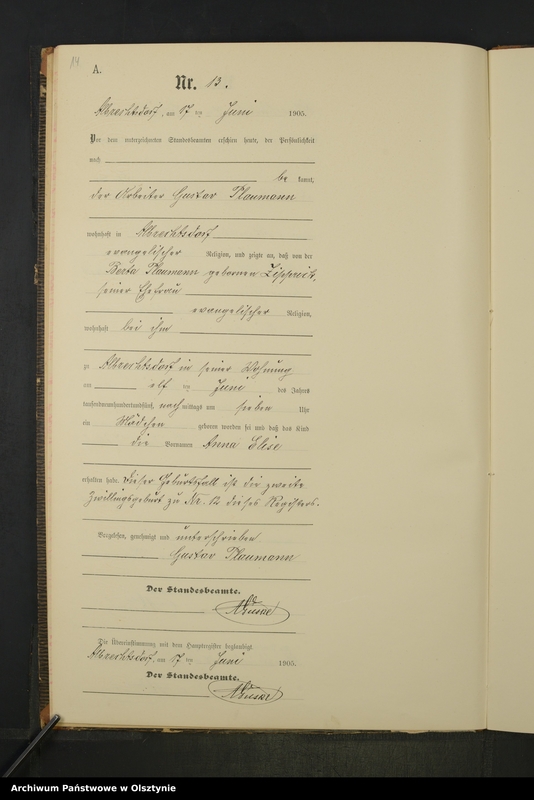 14
A.
Nr. 13.
Albrechtsdorf, am 17 ten Juni 1905.
Vor dem unterzeichneten Standesbeamten erschien heute, der Persönlichkeit
nach
be kannt,
der Arbeiter Gustav Plaumann
wohnhaft in Albrechtsdorf
evangelischer Religion, und zeigte an, daß von der
Berta Plaumann geborenen
seiner Ehefrau
evangelischer Religion,
wohnhaft bei ihm
zu Albrechtsdorf in seiner Wohnung
am elf ten Juni des Jahres
tausendneunhundertundfünf, nach mittags um sieben Uhr
ein Mädchen geboren worden sei und daß das Kind
die Vornamen Anna Elise
erhalten habe. Dieser Geburtsfall ist die zweite
Zwillingsgeburt zu Nr. 12 dieses Registers.
Vorgelesen, genehmigt und unterschrieben
Gustav Plaumann
Der Standesbeamte.
Die Übereinstimmung mit dem Hauptregister beglaubigt
Albrechtsdorf, am 17 ten Juni 1905.
Der Standesbeamte.
Archiwum Państwowe w Olsztynie